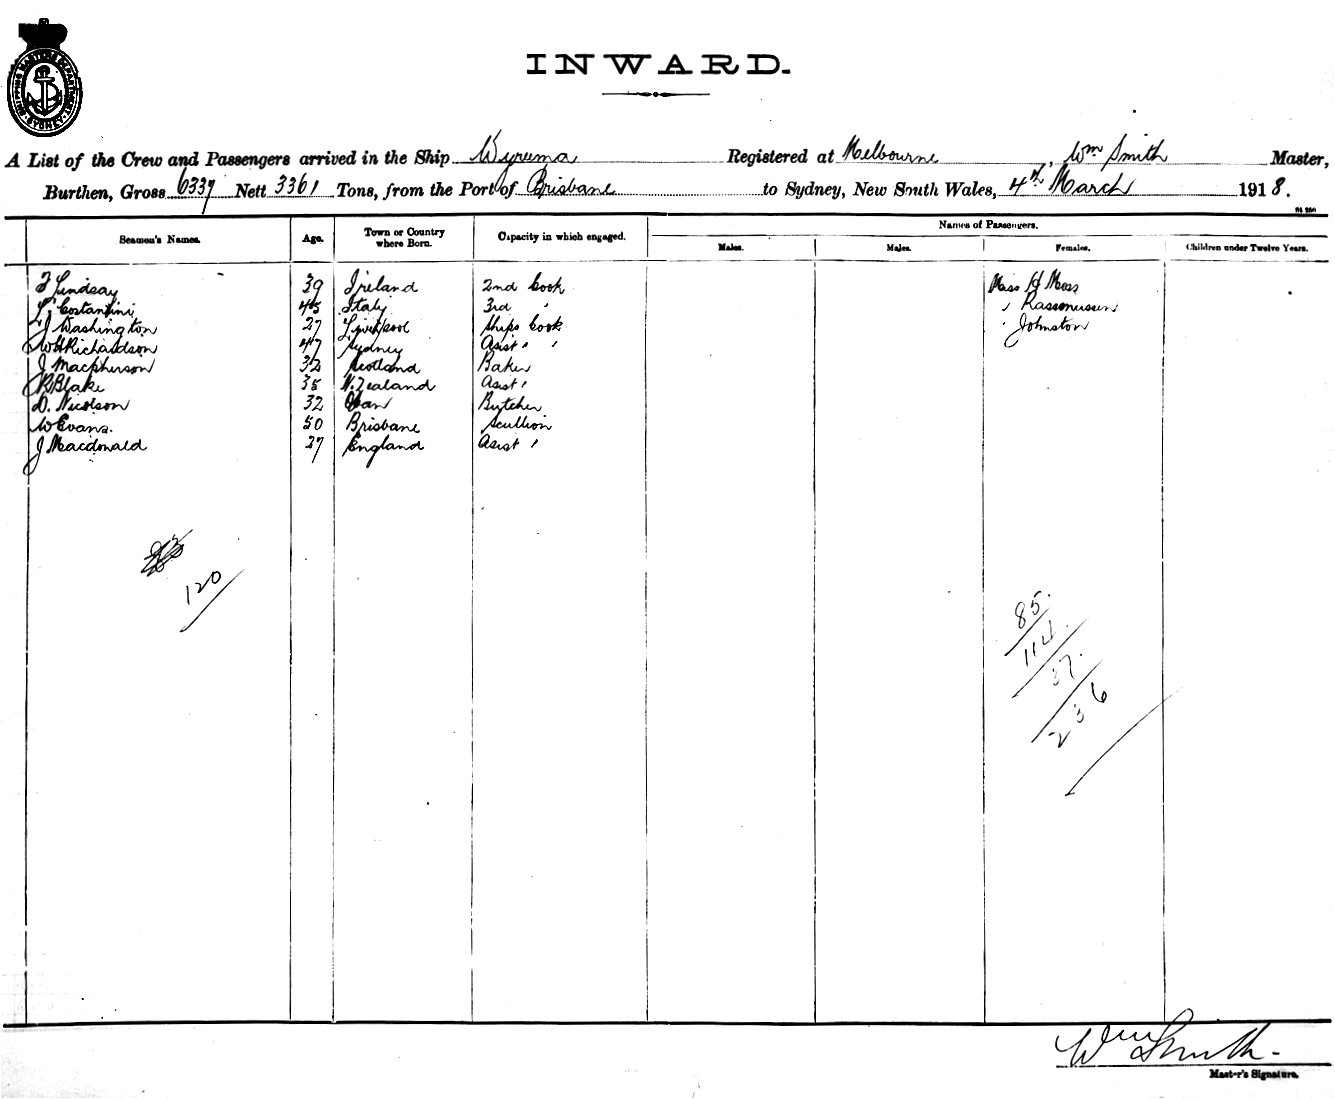 SHIPPING MASTERS DEPARTMENT SYDNEY
INWARD.
A List of the Crew and Passengers arrived in the Ship Wyreema Registered at Melbourne, Wm Smith Master,
Burthen, Gross 6337 Nett 3361 Tons, from the Port of Brisbane to Sydney, New South Wales, 4th March 1918.
Names of Passengers.
Seamen's Names. Age. Town or Country where Born. Capacity in which engaged. Males. Males. Females. Children under Twelve Years.
F Lindsay 39 Ireland 2nd Cook Miss H Moss
L Costantini 45 Italy 3rd " " Rassmussen
J Washington 27 Liverpool Ships Cook " Johnston
W H Richardson 47 Sydney Asist " "
J Macpherson 32 Scotland Baker
R Blake 35 N. Zealand Asist "
D. Nicolson 32 Butcher
W Evans. 50 Brisbane Scullion
J Macdonald 27 England Asist "
120
85.
114.
37.
236
Wm Smith
Master's Signature.